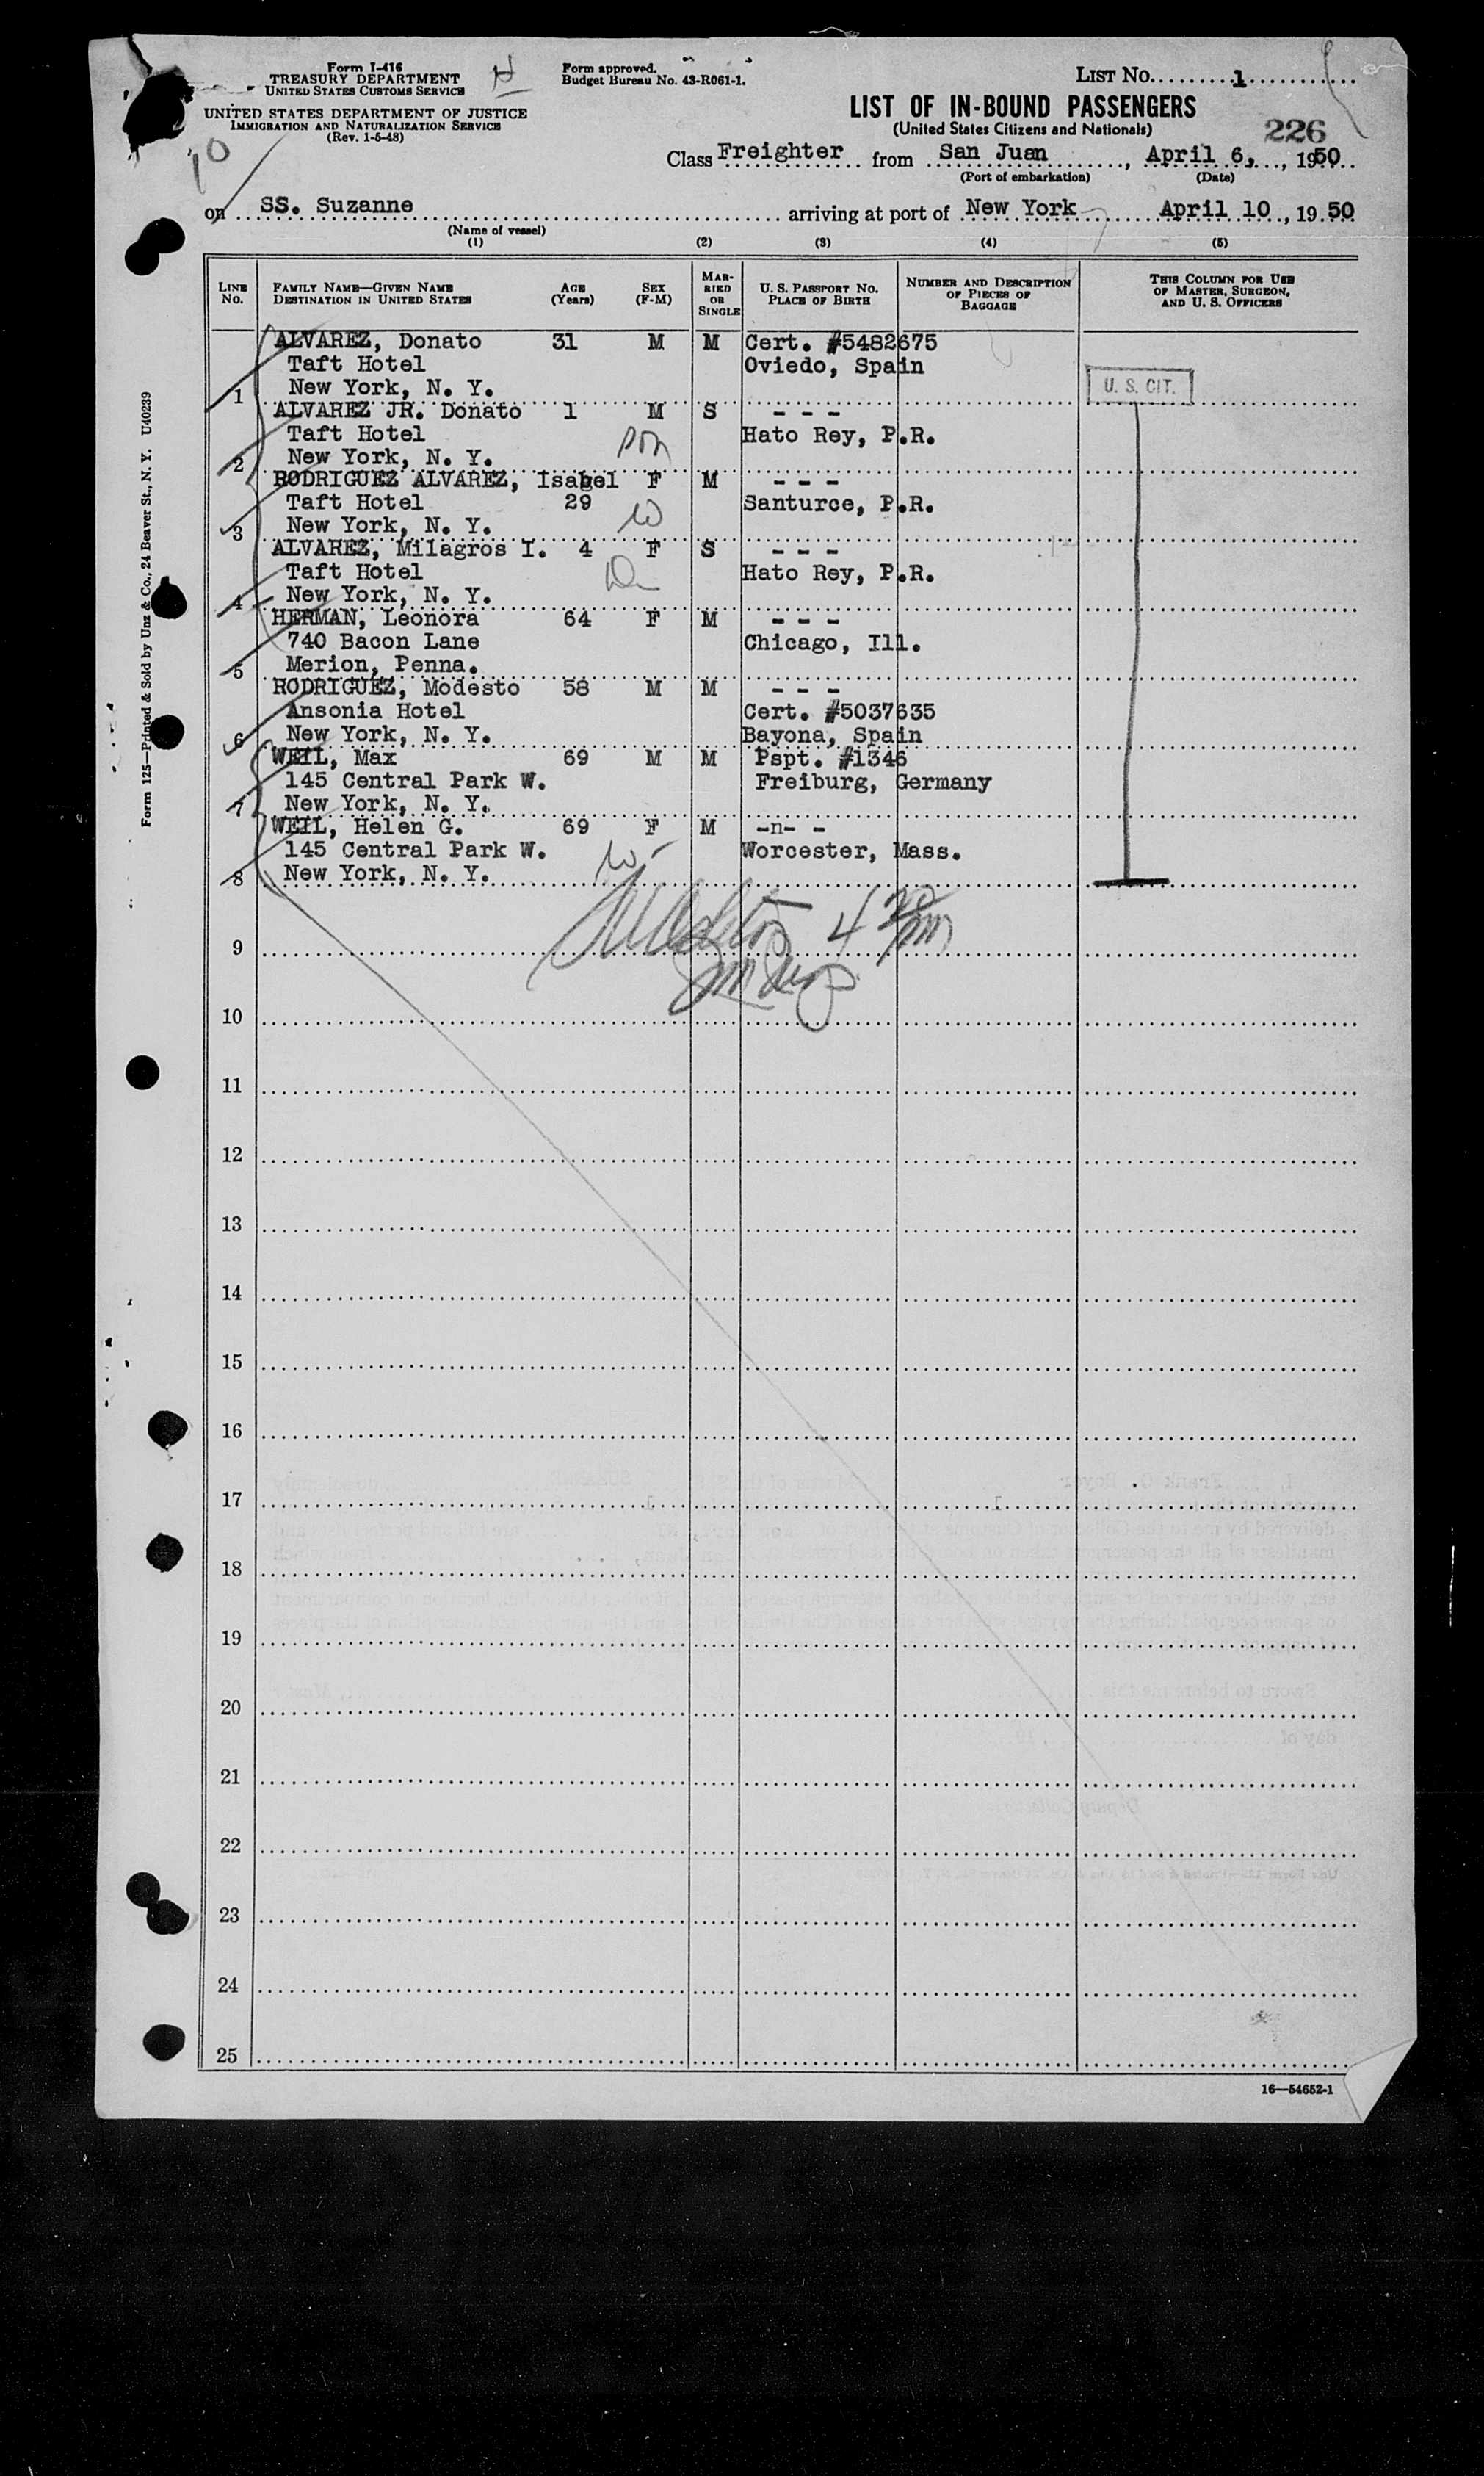 Form I-416
TREASURY DEPARTMENT
UNITED STATES CUSTOMS SERVICE
UNITED STATES DEPARTMENT OF JUSTICE
IMMIGRATION AND NATURALIZATION SERVICE
(Rev. 1-5-48)
Form approved.
Budget Bureau No. 43-R061-1.
LIST NO. 1
LIST OF IN-BOUND PASSENGERS
(United States Citizens and Nationals)
226
10
Class Freighter from San Juan, April 6, 1950
(Port of embarkation) (Date)
on SS. Suzanne arriving at port of New York April 10, 1950
(Name of vessel)
(1) (2) (3) (4) (5)
LINE No. FAMILY NAME—GIVEN NAME DESTINATION IN UNITED STATES AGE (Years) SEX (F-M) MARRIED OR SINGLE U. S. PASSPORT NO. PLACE OF BIRTH NUMBER AND DESCRIPTION OF PIECES OF BAGGAGE THIS COLUMN FOR USE OF MASTER, SURGEON, AND U. S. OFFICERS
ALVAREZ, Donato 31 M M Cert. #5482675
Taft Hotel Oviedo, Spain
1 New York, N. Y. U. S. CIT.
ALVAREZ JR. Donato 1 M S - - -
Taft Hotel son Hato Rey, P.R.
2 New York, N. Y.
RODRIGUEZ ALVAREZ, Isabel F M - - -
Taft Hotel 29 Santurce, P.R.
3 New York, N. Y. W
ALVAREZ, Milagros I. 4 F S - - -
Taft Hotel Hato Rey, P.R.
4 New York, N. Y.
HERMAN, Leonora 64 F M - - -
740 Bacon Lane Chicago, Ill.
5 Merion, Penna.
RODRIGUEZ, Modesto 58 M M - - -
Ansonia Hotel Cert. #5037635
6 New York, N. Y. Bayona, Spain
WEIL, Max 69 M M Pspt. #1346
145 Central Park W. Freiburg, Germany
7 New York, N. Y.
WEIL, Helen G. 69 F M -n- -
145 Central Park W. W Worcester, Mass.
8 New York, N. Y.
9
10
11
12
13
14
15
16
17
18
19
20
21
22
23
24
25
16—54652-1
Form 125—Printed & Sold by Unz & Co., 24 Beaver St., N. Y. U40239